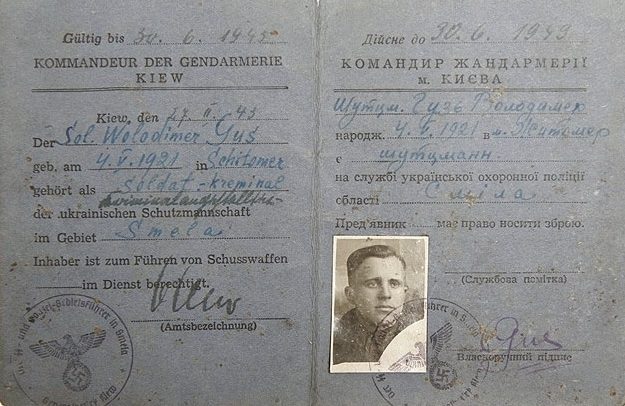 Gültig bis 30. 6. 1945
KOMMANDEUR DER GENDARMERIE
KIEW
Kiew, den 27. II. 43
Der Sol. Wolodimer Guś
geb. am 4. V. 1921 in Schitomer
gehört als soldat-kreminal
der ukrainischen Schutzmannschaft
im Gebiet Smela
Inhaber ist zum Führen von Schusswaffen
im Dienst berechtigt.
(Amtsbezeichnung)
Дійсне до 30. 6. 1943
КОМАНДИР ЖАНДАРМЕРІЇ
м. КИЄВА
Шутцм. Гузь Володимер
народж. 4. V. 1921 в м. Житомер
є шутцманн
на службі української охоронної поліції
області Сміла
Пред'явник має право носити зброю.
(Службова помітка)
Власноручний підпис